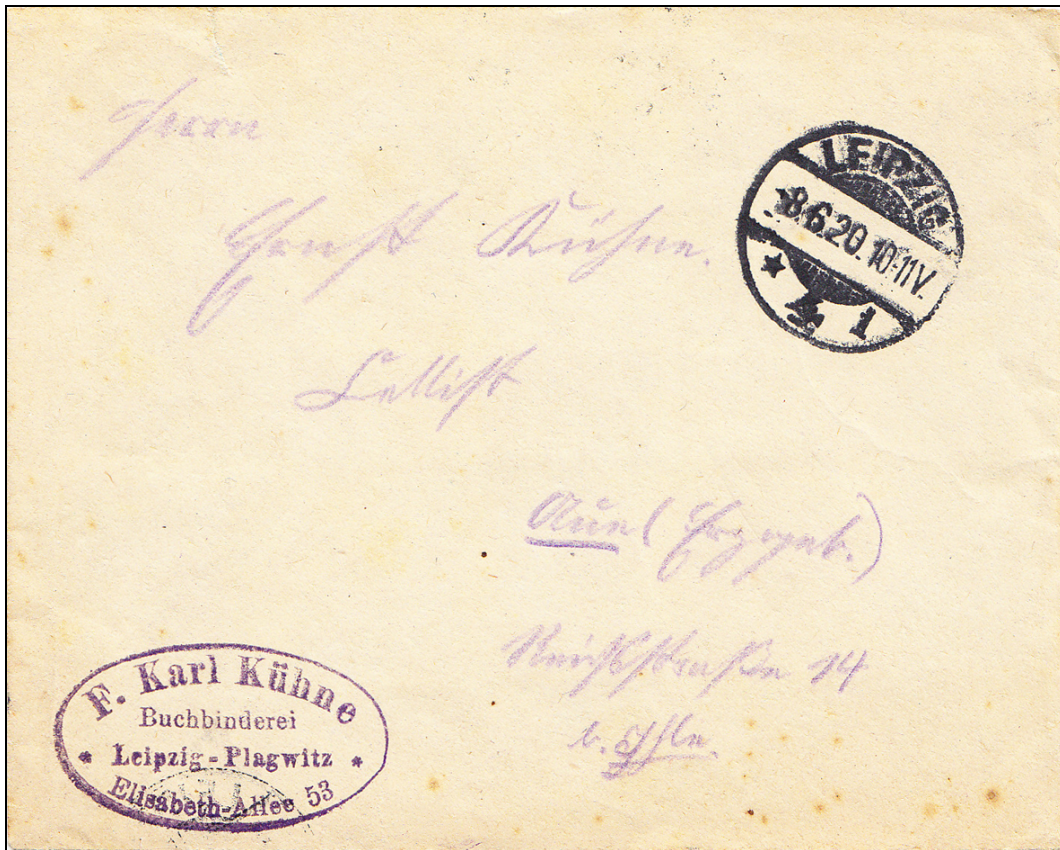 Herrn
Ernst Kühne.
Cellist
Aue (Erzgeb.)
Reichsstraße 14
b. Ihle.
LEIPZIG
-8.6.20.10-11V.
* 1
F. Karl Kühne
Buchbinderei
* Leipzig-Plagwitz *
Elisabeth-Allee 53